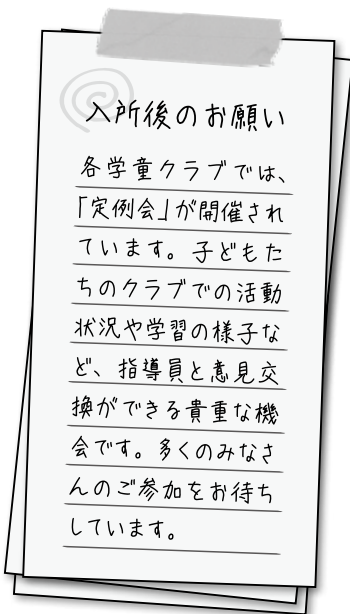 入所後のお願い
各学童クラブでは、
「定例会」が開催され
ています。子どもた
ちのクラブでの活動
状況や学習の様子な
ど、指導員と意見交
換ができる貴重な機
会です。多くのみなさ
んのご参加をお待ち
しています。